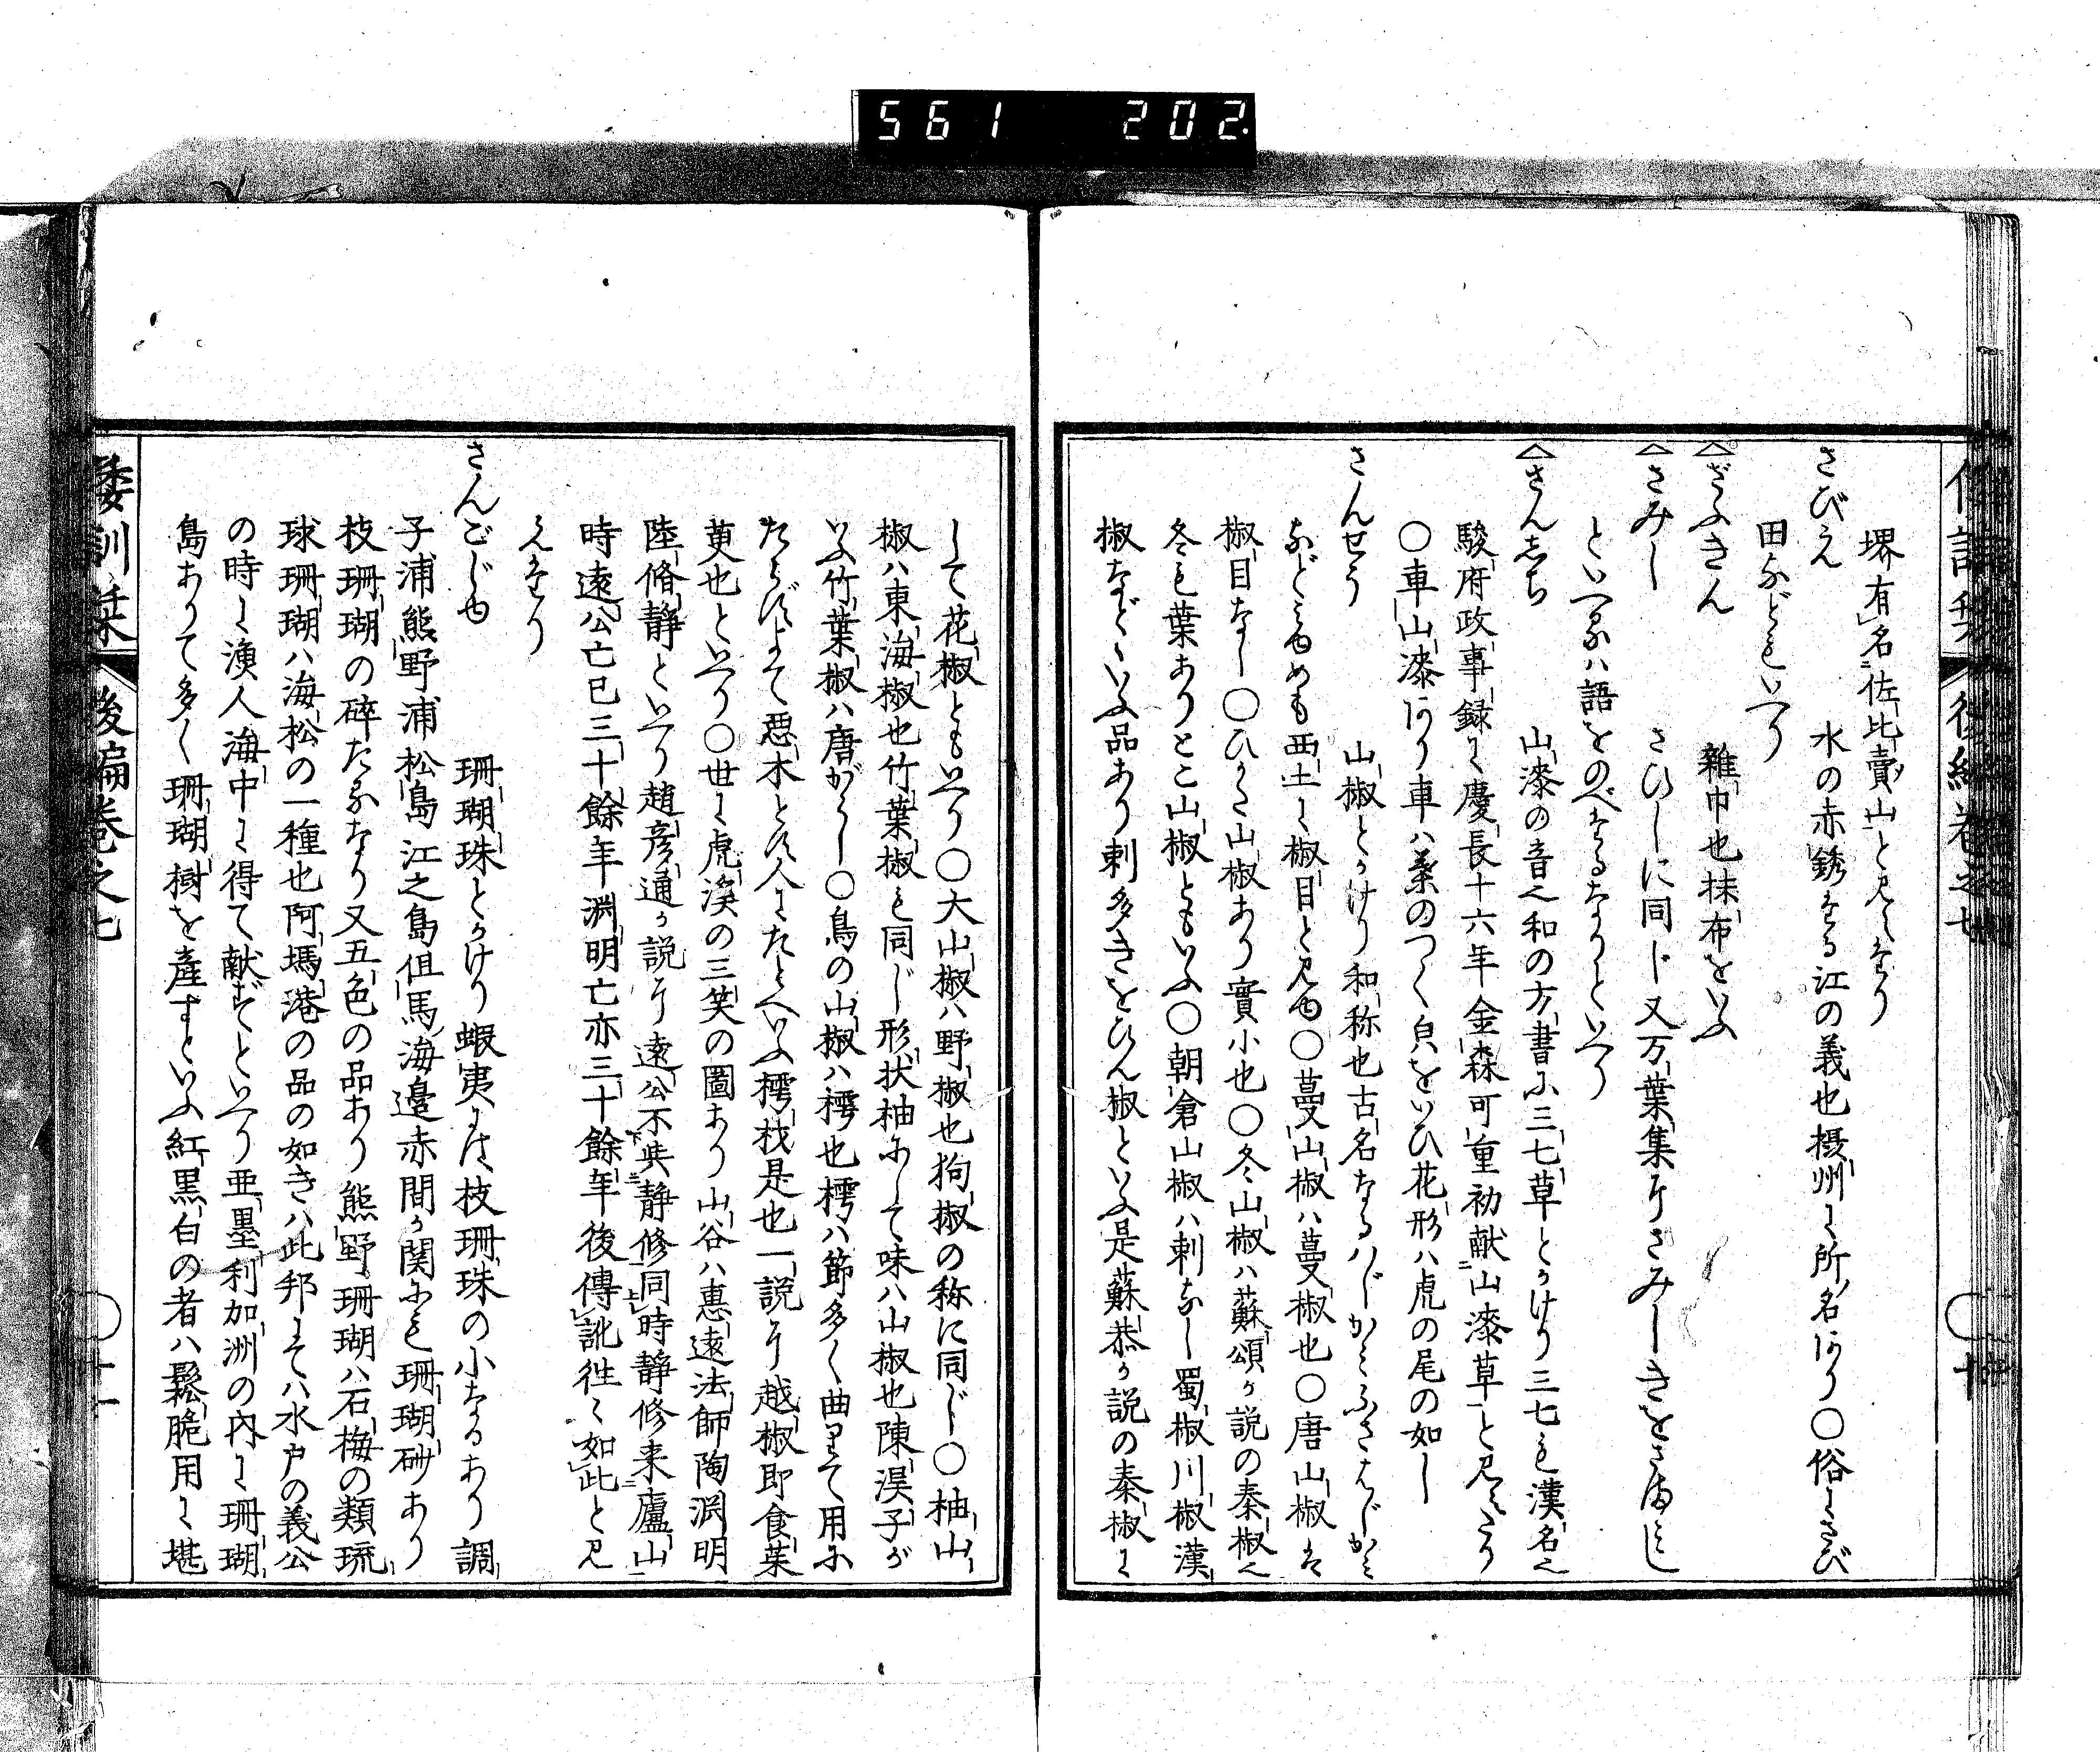 561 202
堺有名佐比賣山と見えたり
さびえ 水の赤銹たる江の義也摂州に所名あり〇俗にさび
田などもいへり
へざふきん 雑巾也抹布をいふ
へさみし さびしに同じ又万葉集にさみしきをさまミし
といへるハ語をのべたるなりといへり
へさんしち 山漆の音也和の方書に三七草とかけり三七も漢名也
駿府政事録に慶長十六年金森可重初献山漆草と見えたり
〇車山漆あり車ハ葉のつく貌をいひ花形ハ虎の尾の如し
さんせう 山椒とかけり和称也古名なるハじかミふさはじかミ
などミゆめも西土に椒目と見ゆ〇蔓山椒ハ蔓椒也〇唐山椒は
椒目なし〇ひめ山椒あり實小也〇冬山椒ハ蘇頌か説の秦椒也
冬も葉ありとこ山椒ともいふ〇朝倉山椒ハ刺なし蜀椒川椒漢
椒などいふ品あり刺多きをひん椒といふ是蘇恭か説の秦椒に
して花椒ともいへり〇大山椒ハ野椒也狗椒の称に同じ〇柚山
椒ハ東海椒也竹葉椒も同じ形状柚にして味ハ山椒也陳淏子が
いふ竹葉椒ハ唐がらし〇鳥の山椒ハ樗也樗ハ節多く曲りて用に
たらずよて悪木とす人にたとへいふ樗材是也一説に越椒即食茱
萸也といへり〇世に虎渓の三笑の圖あり山谷ハ惠遠法師陶渊明
陸脩静といへり趙彦通か説に遠公不與静修同時静修来廬山
時遠公亡已三十餘年渊明亡亦三十餘年後傳訛徃々如此と見
えたり
さんごじゆ 珊瑚珠とかけり蝦夷にハ枝珊珠の小なるあり調
子浦熊野浦松島江之島但馬海邉赤間か関にも珊瑚砂あり
枝珊瑚の碎たるなり又五色の品あり熊野珊瑚ハ石梅の類琉
球珊瑚ハ海松の一種也阿媽港の品の如きハ此邦にてハ水户の義公
の時に漁人海中に得て献ずといへり亜墨利加洲の内に珊瑚
島ありて多く珊瑚樹を産すといふ紅黒白の者ハ鬆脆用に堪
倭訓栞 後編巻之七 〇十一